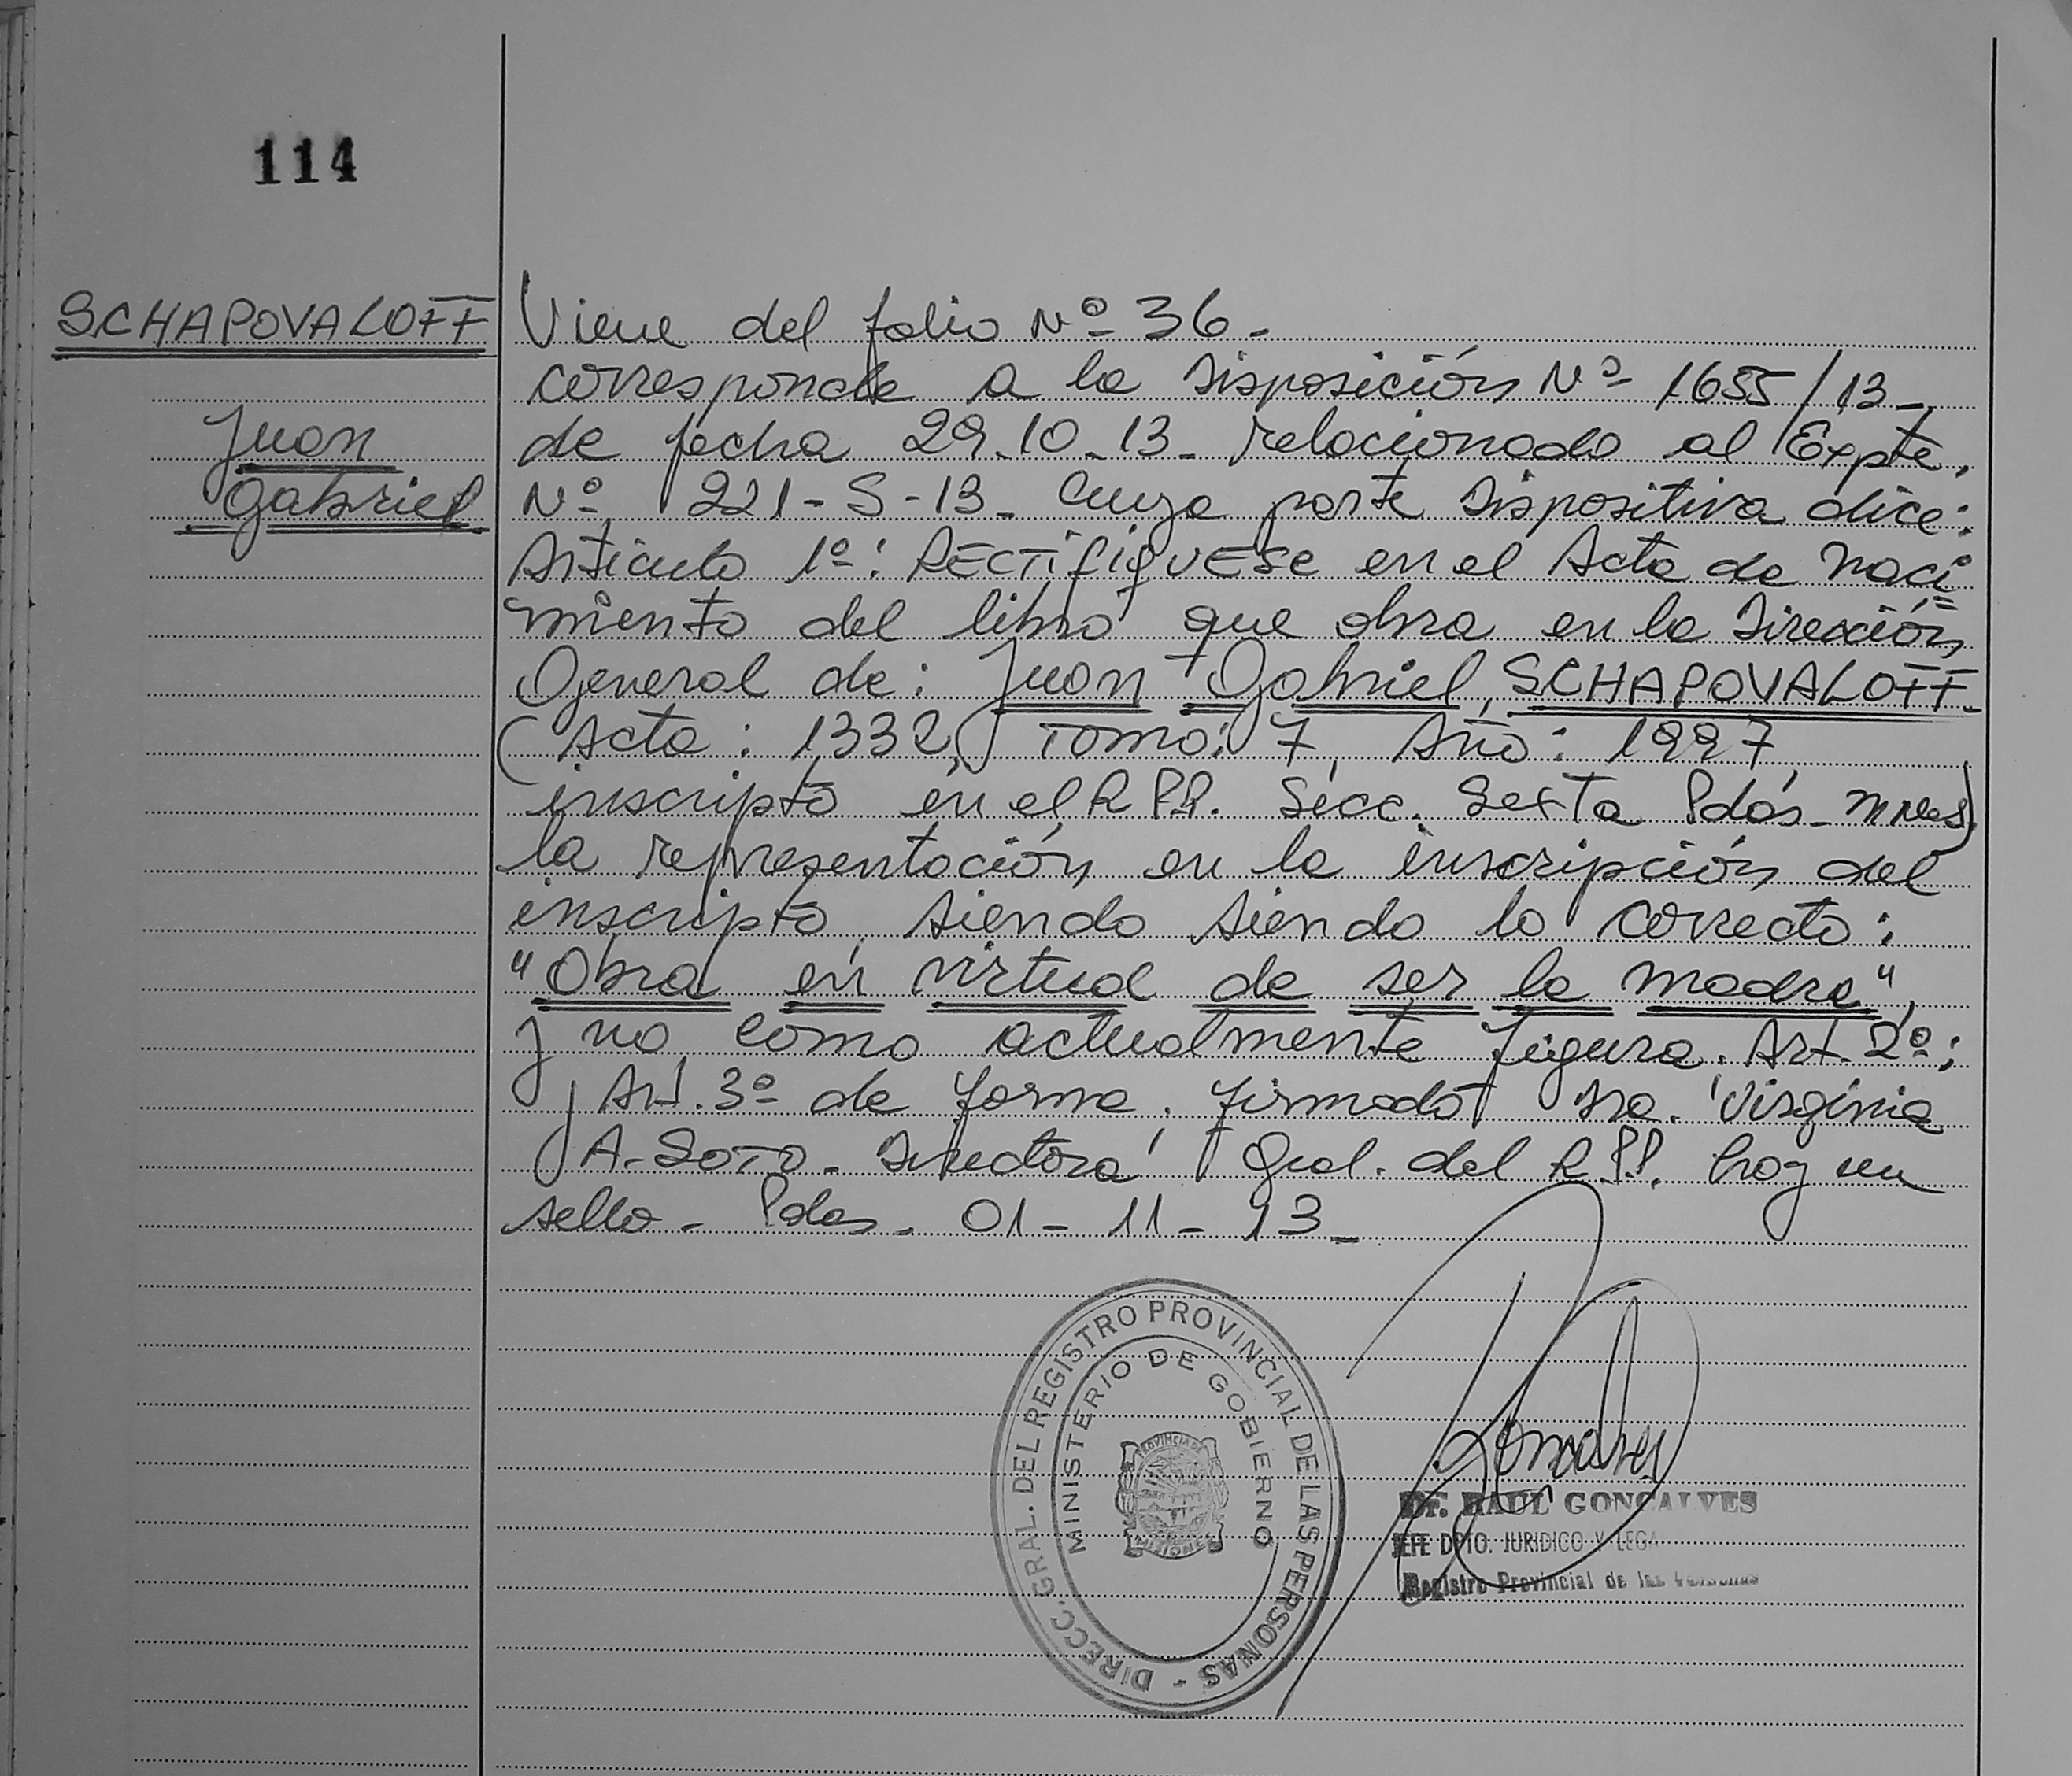 114
SCHAPOVALOFF
Juan
Gabriel
Viene del folio Nº 36-
corresponde a la Disposición Nº 1655/13-
de fecha 29-10-13- relacionado al Expte.
Nº 221-S-13- Cuya parte Dispositiva dice:
Artículo 1º: RECTIFIQUESE en el Acta de Naci
miento del libro que obra en la Dirección
General de: Juan Gabriel SCHAPOVALOFF-
(Acta: 1332, Tomo: 7, Año: 1997,
inscripto en el R.P.P. Secc. Sexta Pdas- Mnes)
la representación en la inscripción del
inscripto, siendo siendo lo correcto:
"Obra en virtud de ser la madre",
y no como actualmente figura. Art. 2º;
y Art. 3º de forma. Firmado Dra. Virginia
A- SOTO- Directora Gral. del R.P.P. hay un
sello- Pdas- 01-11-13-
DIRECC. GRAL. DEL REGISTRO PROVINCIAL DE LAS PERSONAS -
MINISTERIO DE GOBIERNO
PROVINCIA DE
MISIONES
Dr. RAUL GONCALVES
JEFE DPTO. JURIDICO Y LEGA
Registro Provincial de las Personas